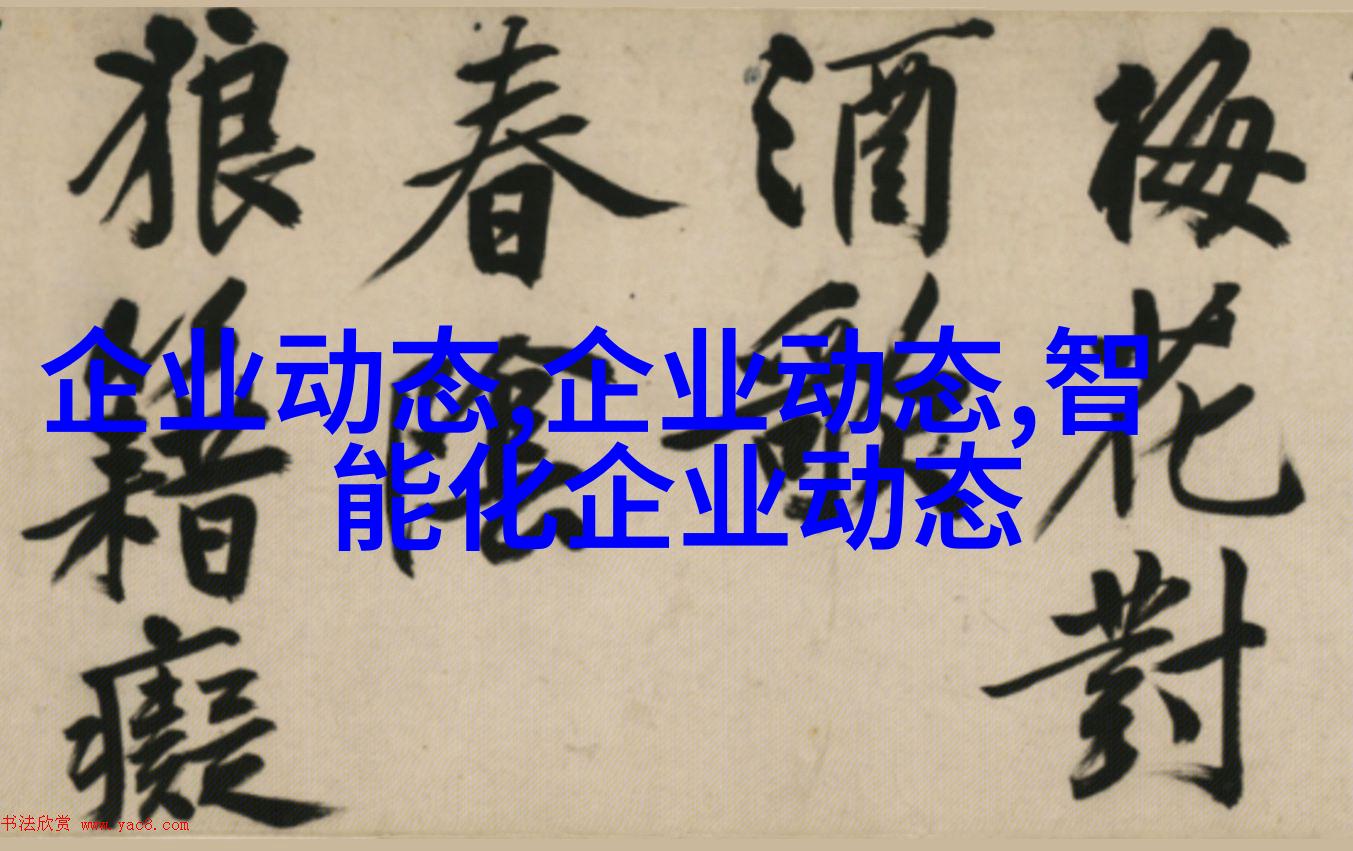 梅花對
酒
春
狼籍癡
企业动态,企业动态,智
能化企业动态
书法欣赏 www.yac8.com